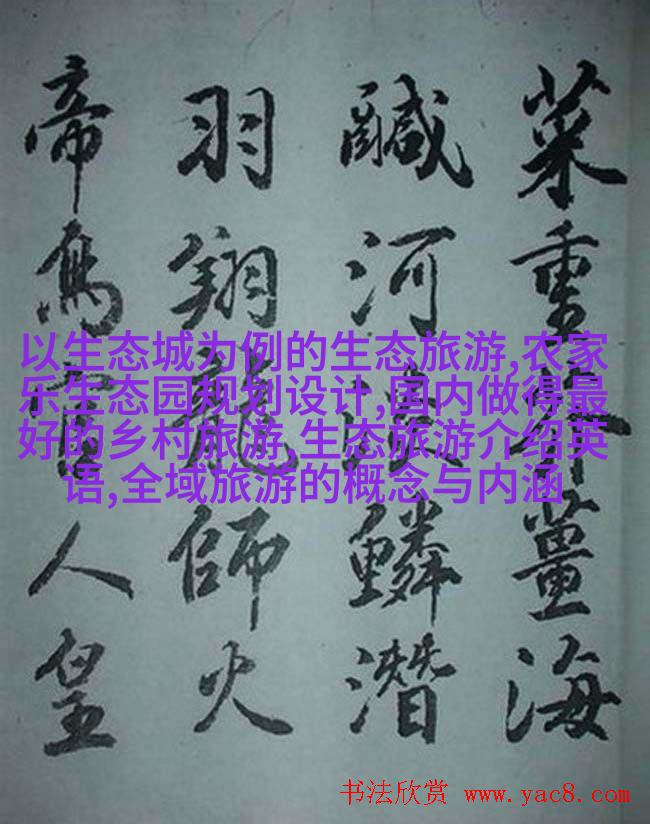 菜重芥薑海
鹹河淡鱗潛
羽翔龍師火
帝鳥官人皇
以生态城为例的生态旅游,农家
乐生态园规划设计,国内做得最
好的乡村旅游,生态旅游介绍英
语,全域旅游的概念与内涵
书法欣赏 www.yac8.com